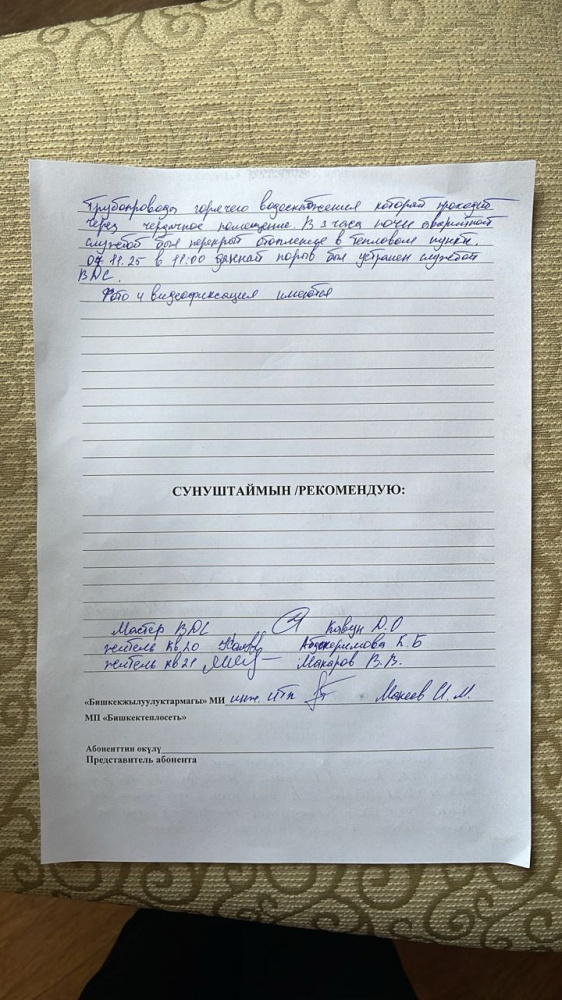 Трубопровода горячего водоснабжения который проходит
через чердачное помещение. В 2 часа ночи аварийной
службой был перекрыт отопление в тепловом пункте.
07.11.25 в 11:00 данный порыв был устранен службой
ВДС.
Фото и видеофиксация имеются
СУНУШТАЙМЫН /РЕКОМЕНДУЮ:
Мастер ВДС Кавун Д.О
житель кв 20 Абдыкеримова К.Б
житель кв 21 Макаров В.В.
«Бишкекжылуулуктармагы» МИ инж. ИТП Макеев И.М.
МП «Бишкектеплосеть»
Абоненттин өкүлү
Представитель абонента